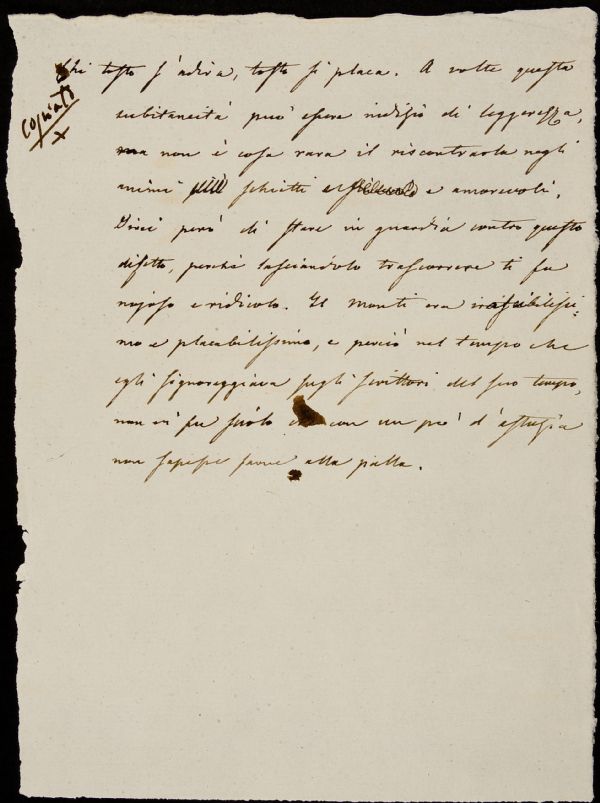 copiato
×
Chi tosto s'adira, tosto si placa. A volte questa
subitaneità può essere indizio di leggerezza,
ma non è cosa rara il riscontrarla negli
animi schietti e amorevoli.
Devi però di stare in guardia contro questo
difetto, perchè lasciandolo trascorrere ti fa
nojoso e ridicolo. Il Monti era irascibilissi-
mo e placabilissimo, e perciò nel tempo che
egli signoreggiava sugli scrittori del suo tempo,
non vi fu che con un po' d'astuzia
non sapesse alla palla.